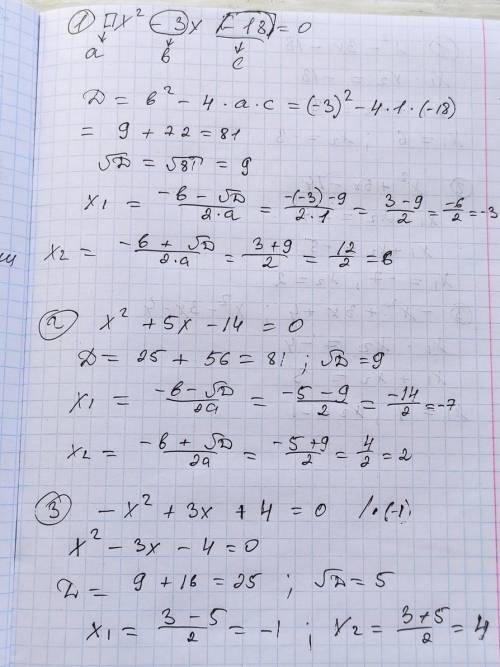 ① 1x² - 3x - 18 = 0
a b c
D = b² - 4·a·c = (-3)² - 4·1·(-18)
= 9 + 72 = 81
√D = √81 = 9
x₁ = (-b - √D)/(2·a) = (-(-3) - 9)/(2·1) = (3 - 9)/2 = -6/2 = -3
x₂ = (-b + √D)/(2·a) = (3 + 9)/2 = 12/2 = 6
② x² + 5x - 14 = 0
D = 25 + 56 = 81 ; √D = 9
x₁ = (-b - √D)/(2a) = (-5 - 9)/2 = -14/2 = -7
x₂ = (-b + √D)/(2a) = (-5 + 9)/2 = 4/2 = 2
③ -x² + 3x + 4 = 0 /·(-1)
x² - 3x - 4 = 0
D = 9 + 16 = 25 ; √D = 5
x₁ = (3 - 5)/2 = -1 ; x₂ = (3 + 5)/2 = 4